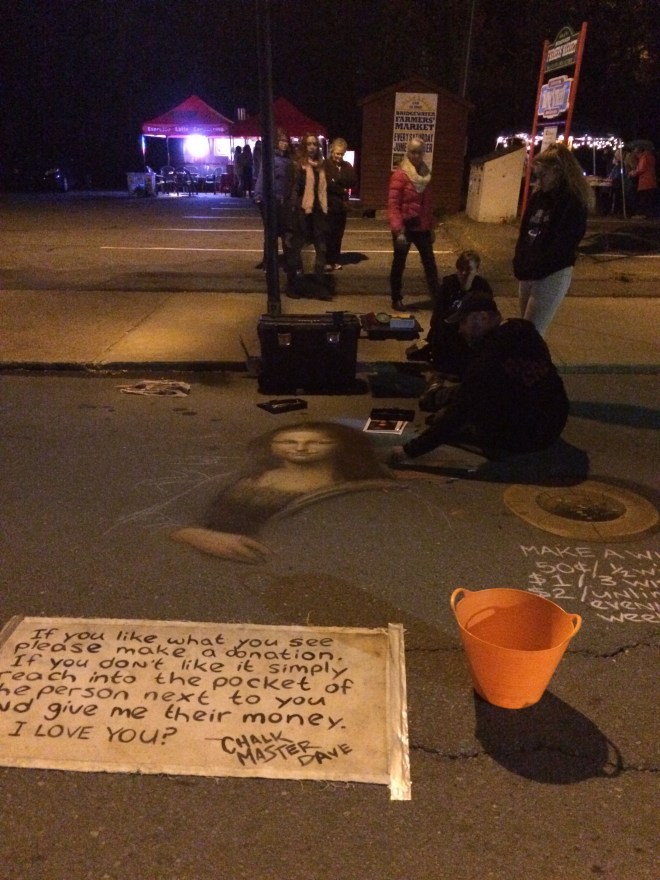 BRIDGEWATER
FARMERS'
MARKET
EVERY SATURDAY
If you like what you see
please make a donation.
If you don't like it simply
reach into the pocket of
the person next to you
and give me their money.
I LOVE YOU?
CHALK
MASTER
DAVE
MAKE A WI
50¢/½ wi
$1/3 wi
$2/unlim
evenin
week